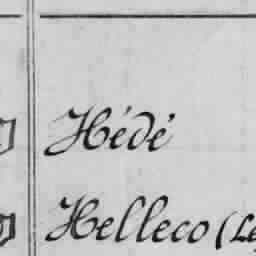 Hédé
Helleco (Le